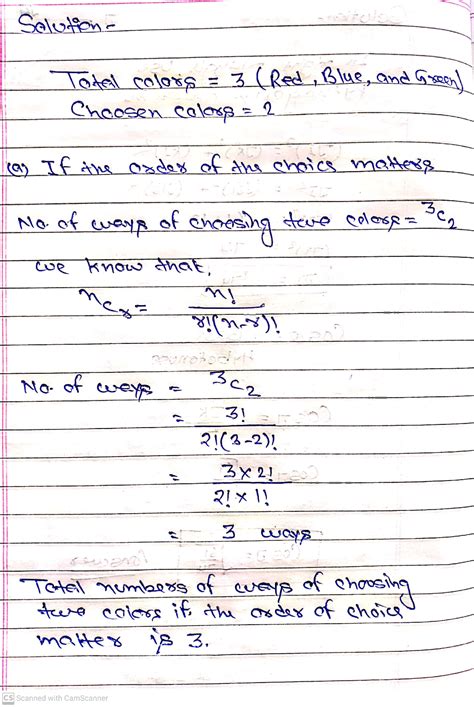 Solution -
Total colors = 3 (Red, Blue, and Green)
Choosen colors = 2
(a) If the order of the choice matters
No. of ways of choosing two colors = ³C₂
we know that,
ⁿCᵣ = n! / r!(n-r)!
No. of ways = ³C₂
= 3! / 2!(3-2)!
= 3×2! / 2!×1!
= 3 ways
Total numbers of ways of choosing
two colors if the order of choice
matter is 3.
CS Scanned with CamScanner